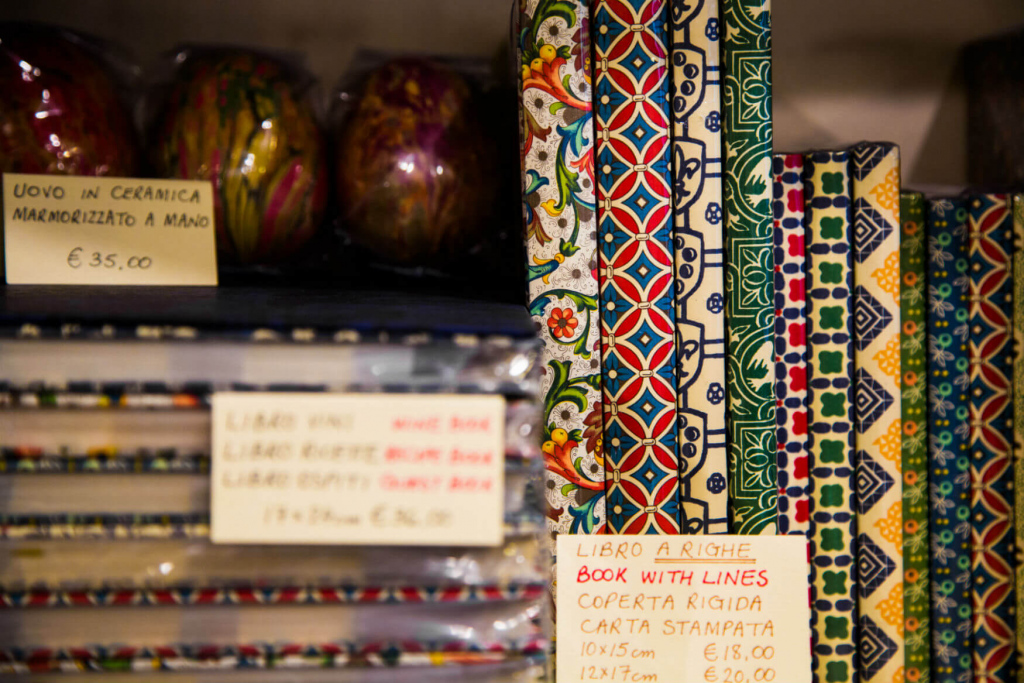 UOVO IN CERAMICA
MARMORIZZATO A MANO
€ 35,00
LIBRO VINI WINE BOOK
LIBRO RICETTE RECIPE BOOK
LIBRO OSPITI GUEST BOOK
LIBRO A RIGHE
BOOK WITH LINES
COPERTA RIGIDA
CARTA STAMPATA
10x15cm €18,00
12x17cm €20,00